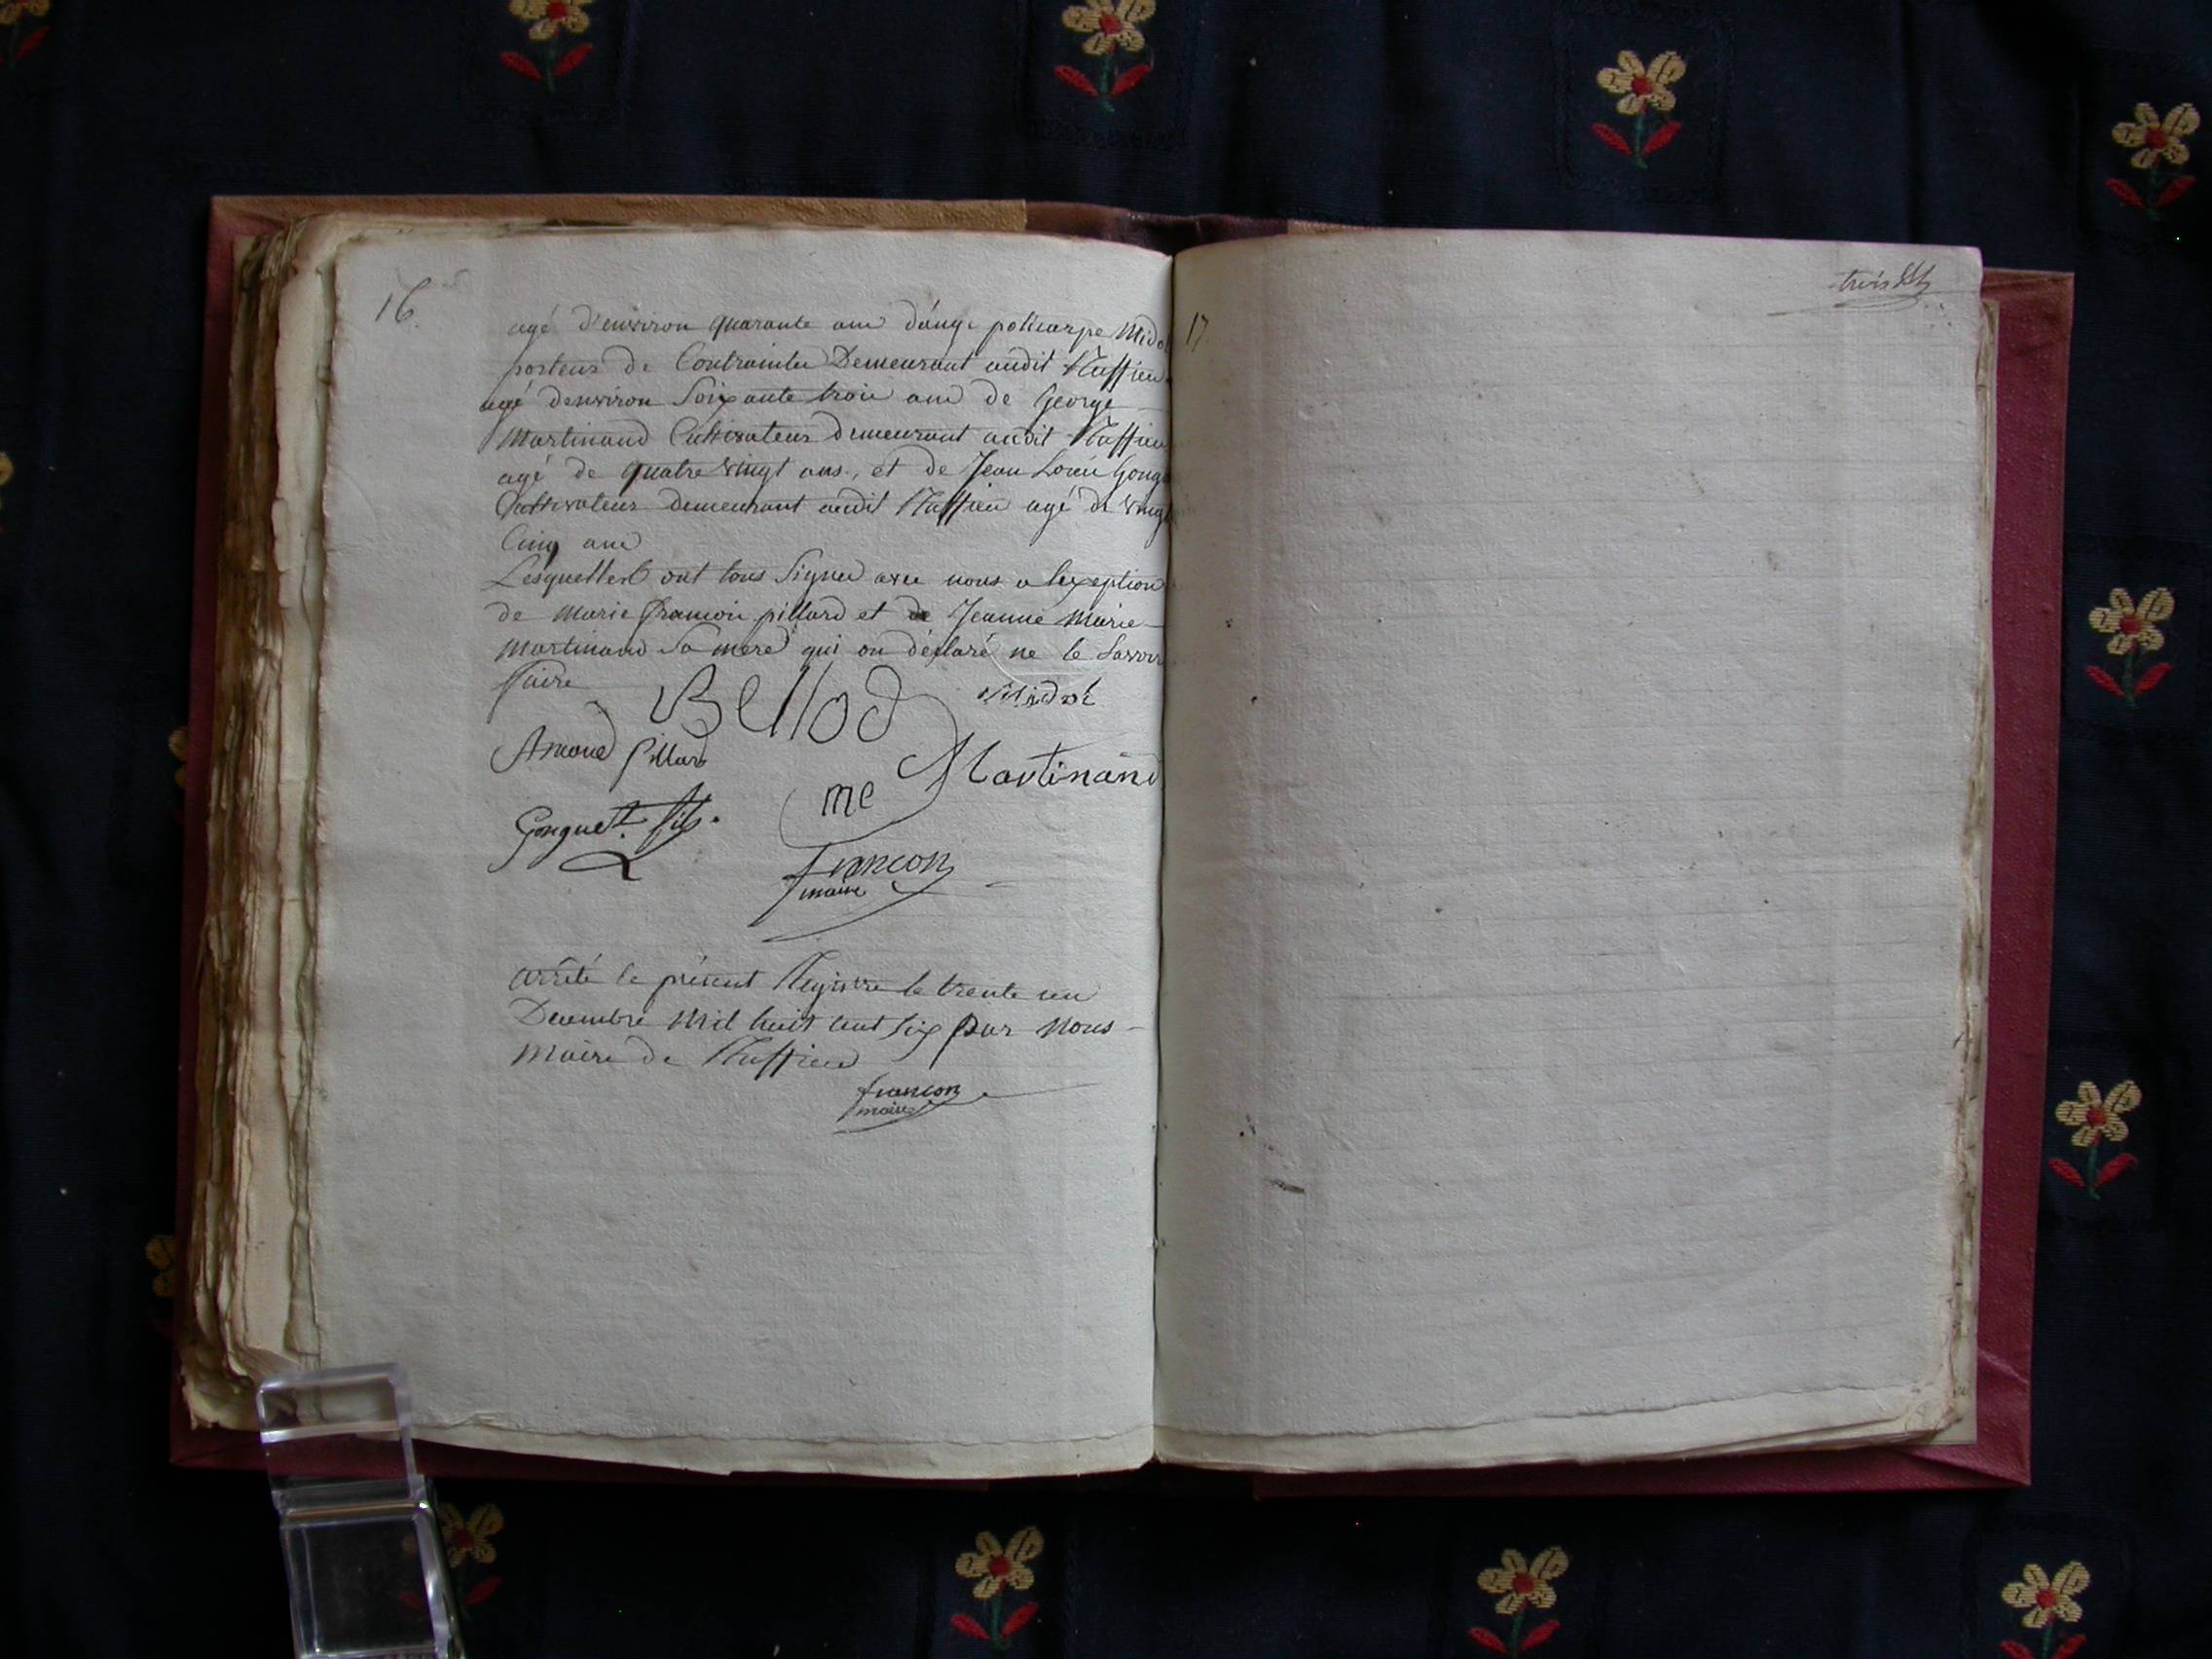 16
agé d'environ quarante ans d'ange policarpe Mido
porteur de Contrainte Demeurant audit Ruffieu
agé denviron Soixante trois ans de George
Martinand Cultivateur demeurant audit Ruffieu
agé de quatre vingt ans, et de Jean Louis Gong
Cultivateur demeurant audit Ruffieu agé de vingt
Cinq ans
Lesquelles ont tous Signés avec nous a lexeption
de marie françoise pillard et de Jeanne Marie
Martinand Sa mere qui on déclaré ne le Savoir
ffaire
Bellod
Midol
Amand Pillard
Martinand
me
Gonguet fils
françon
maire
arrêté le présent Registre le trente un
Decembre Mil huit cent Six par Nous
Maire de Ruffieu
françon
maire
17
trois